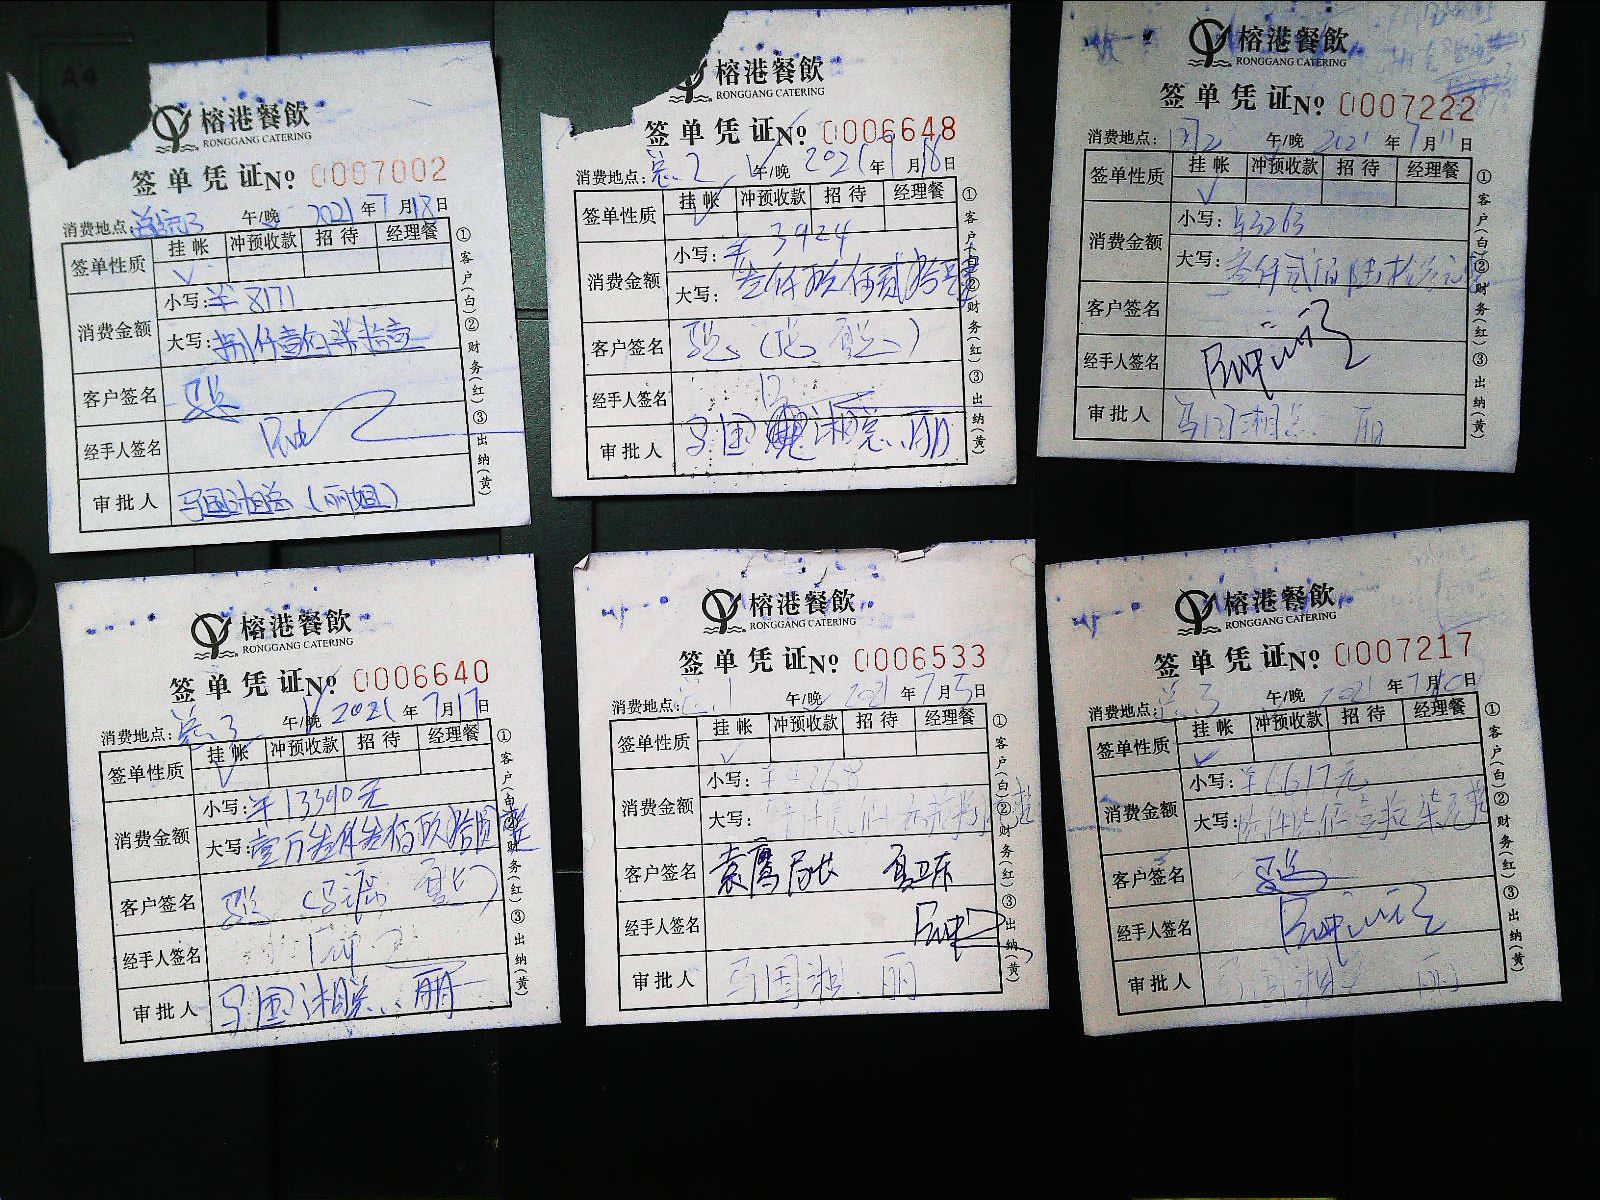 A4
榕港餐飲
RONGGANG CATERING
签单凭证№ 0007002
消费地点: 午/晚 2021年7月18日
签单性质 挂帐 冲预收款 招待 经理餐
✓
消费金额
小写:¥8171
大写:捌仟壹佰柒拾壹
客户签名
经手人签名
审批人 马国湘总(丽姐)
①客户(白)②财务(红)③出纳(黄)
榕港餐飲
RONGGANG CATERING
签单凭证№ 0006648
消费地点:总2 午/晚 2021年7月18日
签单性质 挂帐 冲预收款 招待 经理餐
✓
消费金额
小写:¥3924
大写:叁仟玖佰贰拾肆
客户签名
经手人签名
审批人 马国湘总、丽
①客户(白)②财务(红)③出纳(黄)
榕港餐飲
RONGGANG CATERING
签单凭证№ 0007222
消费地点: 午/晚 2021年7月11日
签单性质 挂帐 冲预收款 招待 经理餐
✓
消费金额
小写:¥3263
大写:叁仟贰佰陆拾叁元整
客户签名
经手人签名
审批人 马国湘总 丽
①客户(白)②财务(红)③出纳(黄)
榕港餐飲
RONGGANG CATERING
签单凭证№ 0006640
消费地点:总3 午/晚 2021年7月17日
签单性质 挂帐 冲预收款 招待 经理餐
✓
消费金额
小写:¥13390元
大写:壹万叁仟叁佰玖拾圆整
客户签名
经手人签名
审批人 马国湘总、丽
①客户(白)②财务(红)③出纳(黄)
榕港餐飲
RONGGANG CATERING
签单凭证№ 0006533
消费地点:总1 午/晚 2021年7月5日
签单性质 挂帐 冲预收款 招待 经理餐
✓
消费金额
小写:¥4268
大写:
客户签名 袁鹰局长 夏卫东
经手人签名
审批人 马国湘总、丽
①客户(白)②财务(红)③出纳(黄)
榕港餐飲
RONGGANG CATERING
签单凭证№ 0007217
消费地点:总3 午/晚 2021年7月10日
签单性质 挂帐 冲预收款 招待 经理餐
✓
消费金额
小写:¥6617元
大写:陆仟陆佰壹拾柒元整
客户签名
经手人签名
审批人 丽
①客户(白)②财务(红)③出纳(黄)